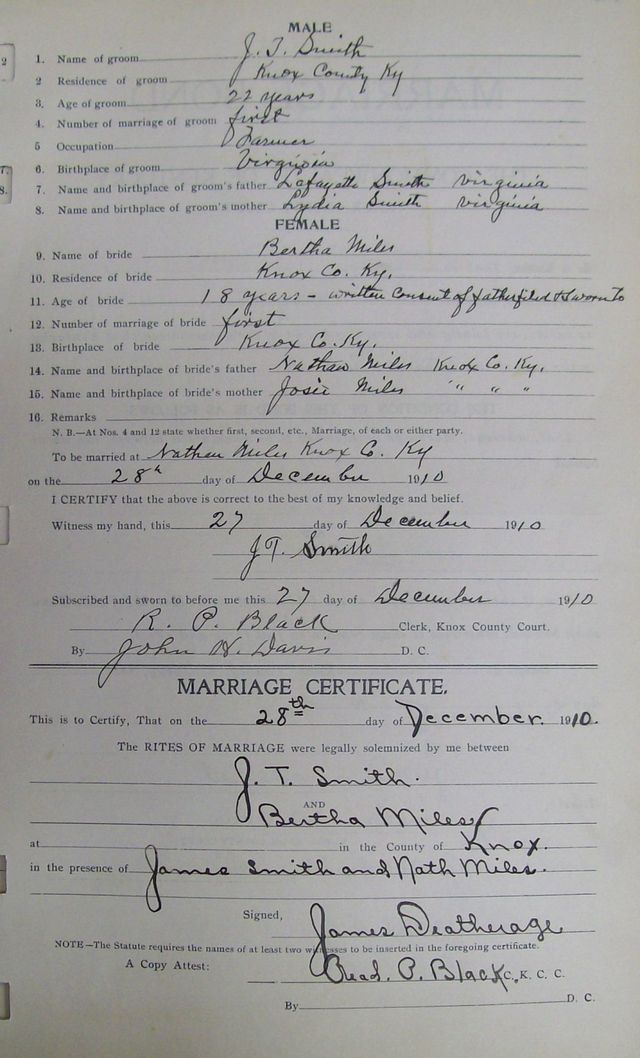 MALE
1. Name of groom J. T. Smith
2 Residence of groom Knox County Ky
3. Age of groom 22 years
4. Number of marriage of groom first
5 Occupation Farmer
6. Birthplace of groom Virginia
7. Name and birthplace of groom's father Lafayette Smith Virginia
8. Name and birthplace of groom's mother Lydia Smith Virginia
FEMALE
9. Name of bride Bertha Miles
10. Residence of bride Knox Co. Ky.
11. Age of bride 18 years - written consent of father filed & sworn to
12. Number of marriage of bride first
13. Birthplace of bride Knox Co. Ky.
14. Name and birthplace of bride's father Nathan Miles Knox Co. Ky.
15. Name and birthplace of bride's mother Josie Miles " " "
16. Remarks
N. B.—At Nos. 4 and 12 state whether first, second, etc., Marriage, of each or either party.
To be married at Nathan Miles Knox Co. Ky
on the 28th day of December 1910
I CERTIFY that the above is correct to the best of my knowledge and belief.
Witness my hand, this 27 day of December 1910
J.T. Smith
Subscribed and sworn to before me this 27 day of December 1910
R. P. Black Clerk, Knox County Court.
By John H. Davis D. C.
MARRIAGE CERTIFICATE.
This is to Certify, That on the 28th day of December. 1910.
The RITES OF MARRIAGE were legally solemnized by me between
J. T. Smith.
AND
Bertha Miles
at in the County of Knox.
in the presence of James Smith and Nath Miles.
Signed, James Deatherage
NOTE—The Statute requires the names of at least two witnesses to be inserted in the foregoing certificate.
A Copy Attest: Read. P. Black C. K. C. C.
By D. C.
2
7.
8.